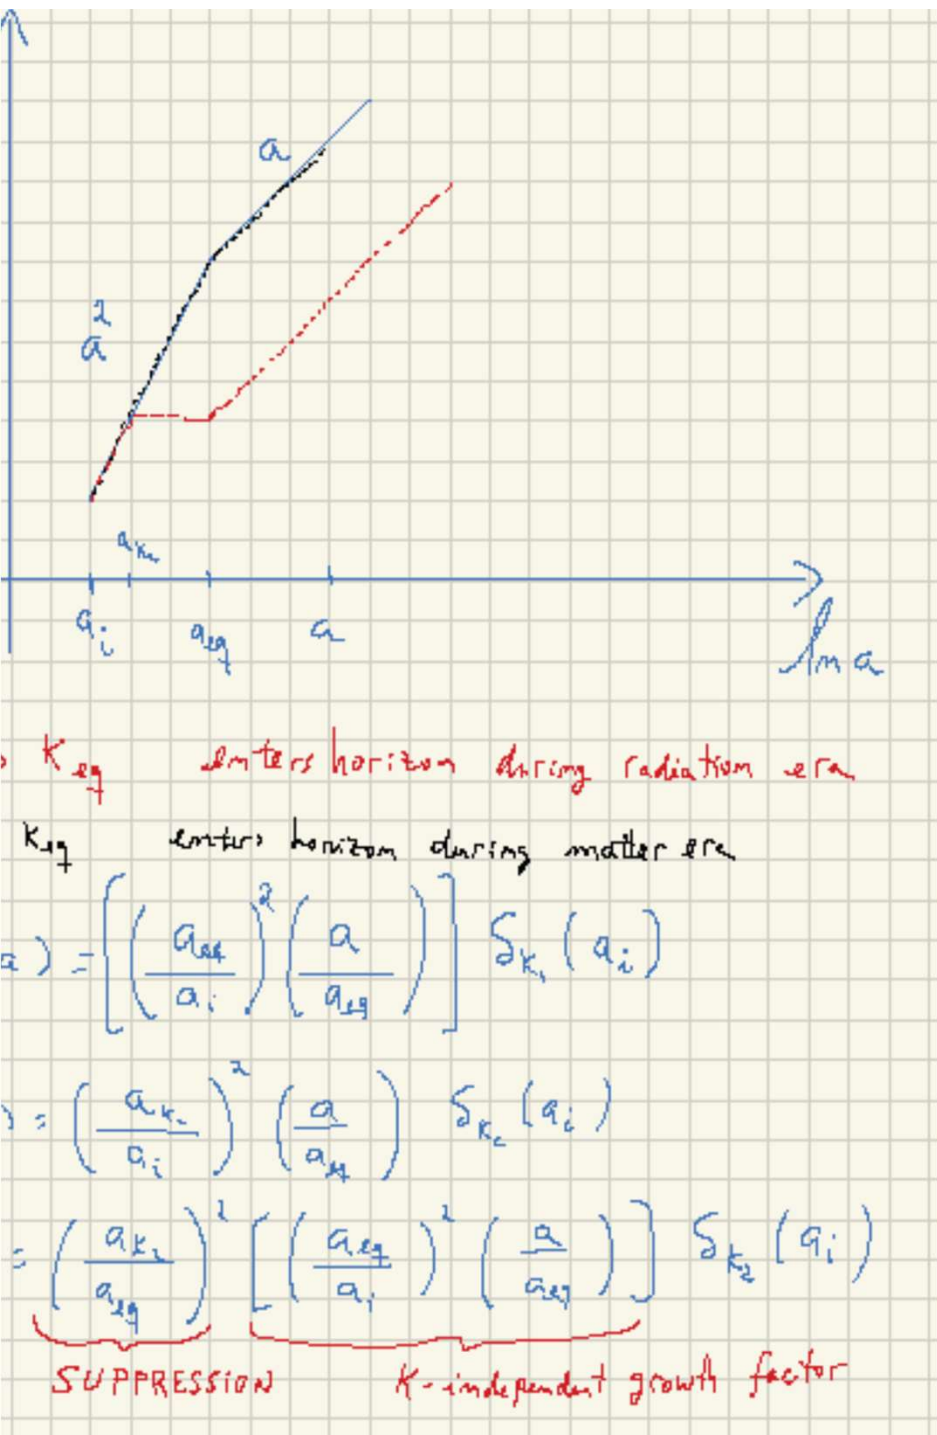 a
a²
a_{k₂}
a_i a_{eq} a
ln a
K_{eq} enters horizon during radiation era
K_{eq} enters horizon during matter era
a) = [(a_{eq}/a_i)² (a/a_{eq})] δ_{K₁}(a_i)
) = (a_{K₂}/a_i)² (a/a_{eq}) δ_{K₂}(a_i)
= (a_{K₂}/a_{eq})² [(a_{eq}/a_i)² (a/a_{eq})] δ_{K₂}(a_i)
SUPPRESSION K-independent growth factor